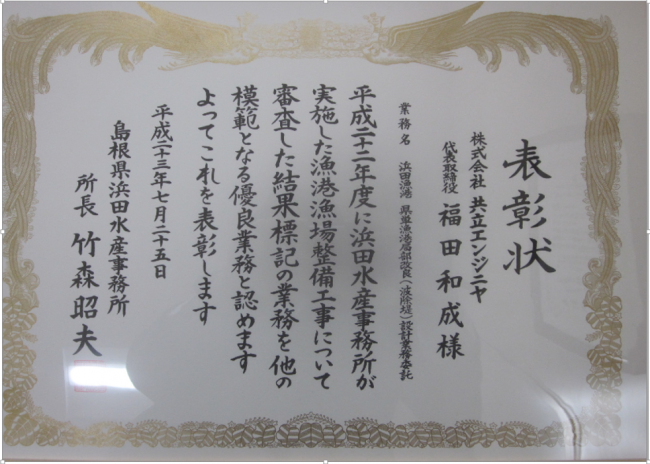 表彰状
株式会社 共立エンジニヤ
代表取締役 福田和成様
業務名 浜田漁港 県単漁港局部改良(波除堤)設計業務委託
平成二十二年度に浜田水産事務所が
実施した漁港漁場整備工事について
審査した結果標記の業務を他の
模範となる優良業務と認めます
よってこれを表彰します
平成二十三年七月二十五日
島根県浜田水産事務所
所長 竹森昭夫